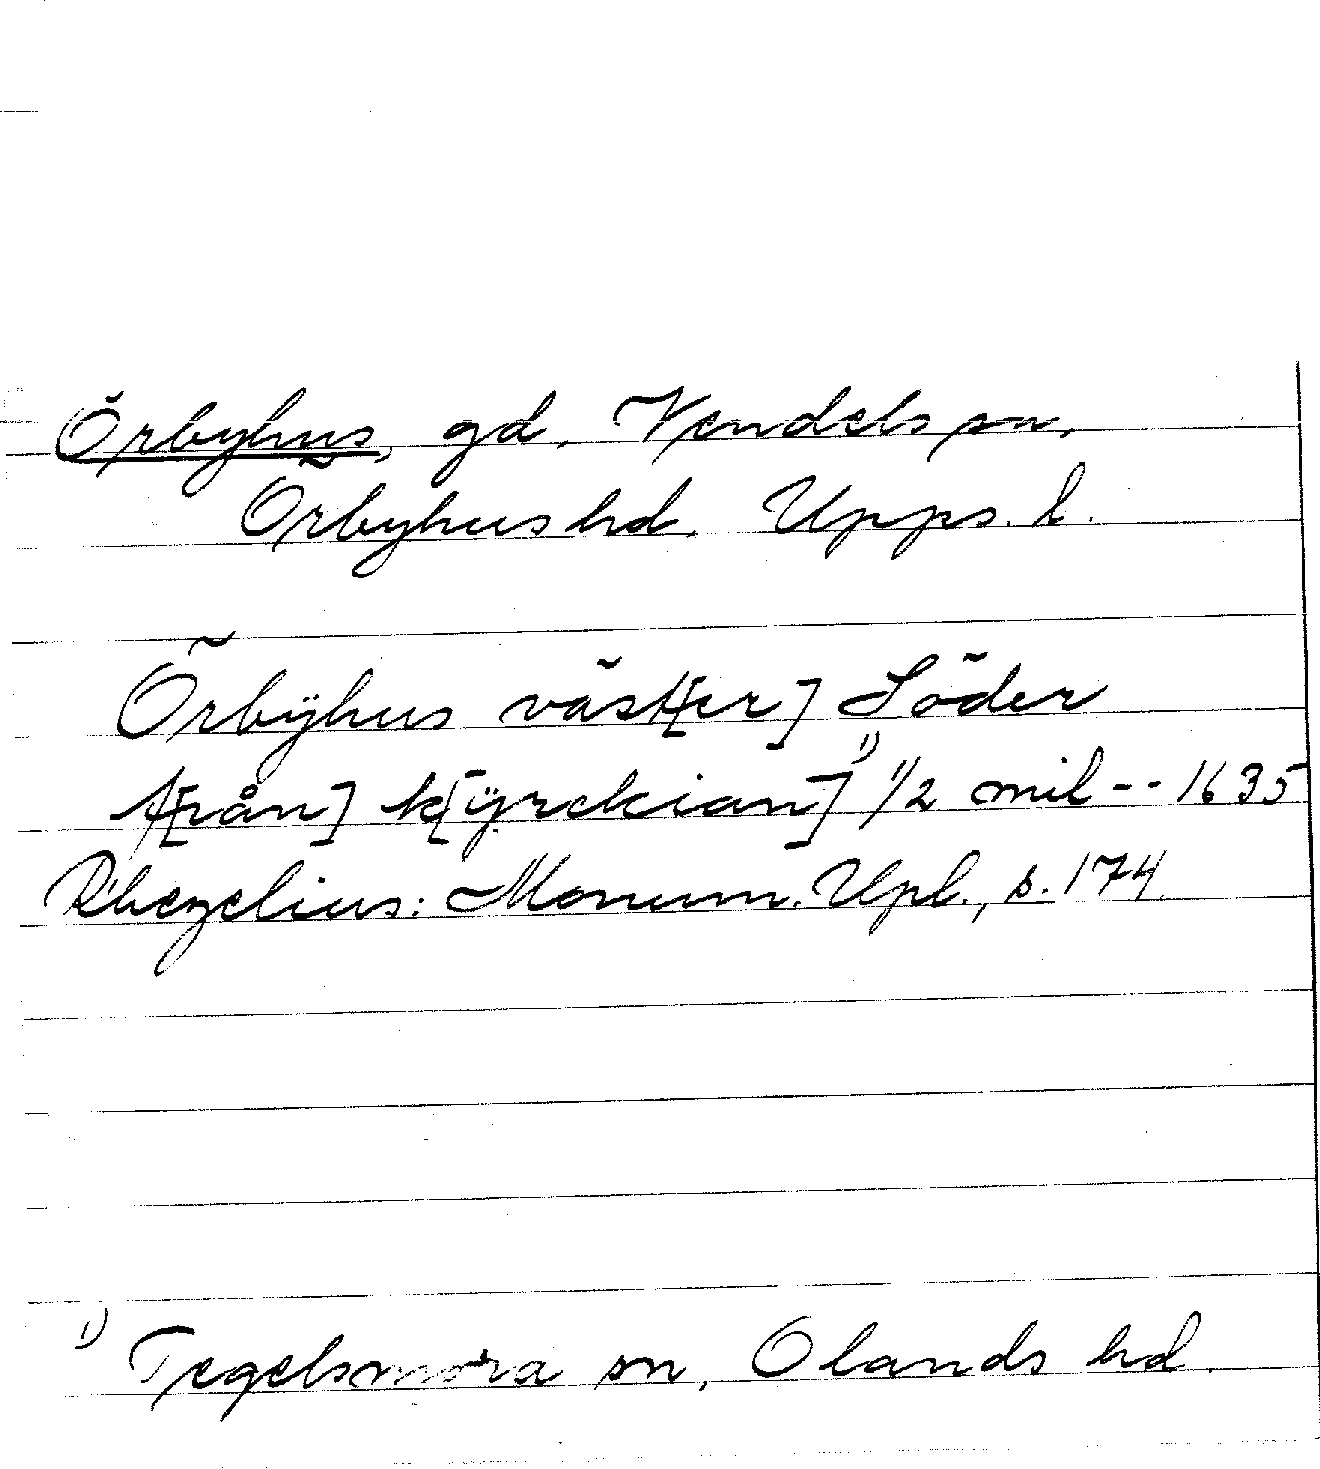 Örbyhus, gd, Vendels sn,
Örbyhus hd. Upps. l.
Örbÿhus väst[er] Söder
f[rån] k[ÿrckian]¹⁾ 1/2 mil -- 1635
Rhezelius: Monum. Upl., s. 174.
¹⁾ Tegelsmora sn, Olands hd.